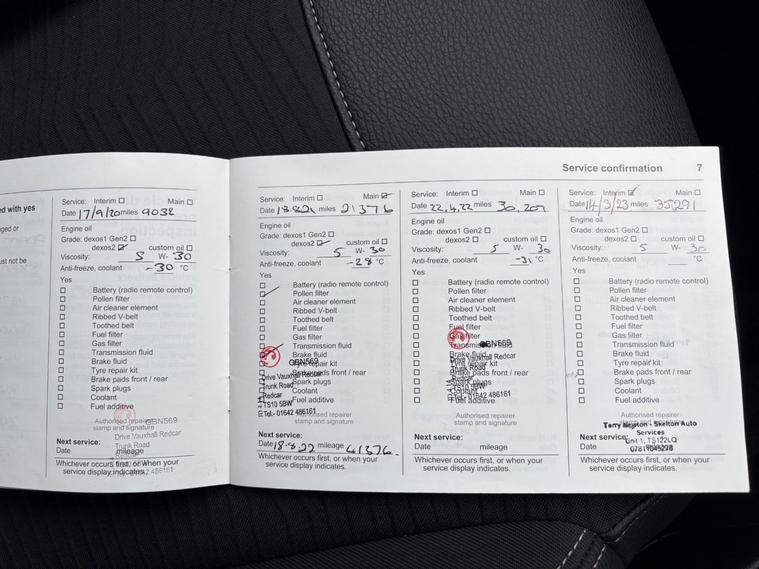 Service confirmation 7
ed with yes
ged or
ust not be
Service: Interim Main
Date 17/9/20 miles 9038
Engine oil
Grade: dexos1 Gen2
dexos2 custom oil
Viscosity: 5 W- 30
Anti-freeze, coolant -30 °C
Yes
Battery (radio remote control)
Pollen filter
Air cleaner element
Ribbed V-belt
Toothed belt
Fuel filter
Gas filter
Transmission fluid
Brake fluid
Tyre repair kit
Brake pads front / rear
Spark plugs
Coolant
Fuel additive
Authorised repairer
stamp and signature
GBN569
Drive Vauxhall Redcar
Trunk Road
486161
Next service:
Date mileage
Whichever occurs first, or when your
service display indicates.
Service: Interim Main
Date miles 21376
Engine oil
Grade: dexos1 Gen2
dexos2 custom oil
Viscosity: 5 W- 30
Anti-freeze, coolant -28 °C
Yes
Battery (radio remote control)
Pollen filter
Air cleaner element
Ribbed V-belt
Toothed belt
Fuel filter
Gas filter
Transmission fluid
Brake fluid
Tyre repair kit
Brake pads front / rear
Spark plugs
Coolant
Fuel additive
GBN569
Drive Vauxhall Redcar
Trunk Road
Redcar
TS10 5BW
Tel - 01642 486161
Authorised repairer
stamp and signature
Next service:
Date 18-8-22 mileage 41376
Whichever occurs first, or when your
service display indicates.
Service: Interim Main
Date 22,4,22 miles 30,207
Engine oil
Grade: dexos1 Gen2
dexos2 custom oil
Viscosity: 5 W- 30
Anti-freeze, coolant -31 °C
Yes
Battery (radio remote control)
Pollen filter
Air cleaner element
Ribbed V-belt
Toothed belt
Fuel filter
Gas filter
Transmission fluid
Brake fluid
Tyre repair kit
Brake pads front / rear
Spark plugs
Coolant
Fuel additive
GBN569
Drive Vauxhall Redcar
Trunk Road
TS10 5BW
Tel - 01642 486161
Authorised repairer
stamp and signature
Next service:
Date mileage
Whichever occurs first, or when your
service display indicates.
Service: Interim Main
Date 14/3/23 miles 35291
Engine oil
Grade: dexos1 Gen2
dexos2 custom oil
Viscosity: 5 W- 30
Anti-freeze, coolant °C
Yes
Battery (radio remote control)
Pollen filter
Air cleaner element
Ribbed V-belt
Toothed belt
Fuel filter
Gas filter
Transmission fluid
Brake fluid
Tyre repair kit
Brake pads front / rear
Spark plugs
Coolant
Fuel additive
Authorised repairer
stamp and signature
Terry - Skelton Auto
Services
Unit 1, TS122LQ
Next service:
Date mileage
Whichever occurs first, or when your
service display indicates.